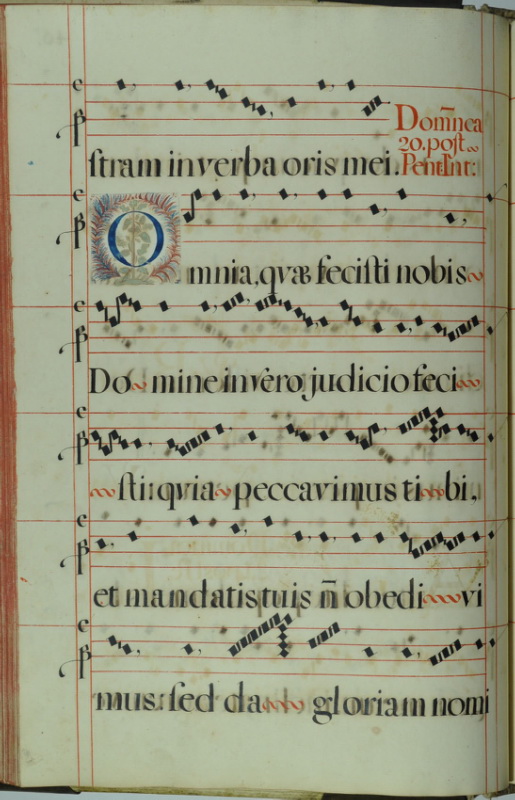 stram in verba oris mei.
Dom̃nca
20. post
Pent Int:
Omnia, quæ fecisti nobis
Domine in vero judicio feci
sti: quia peccavimus tibi,
et mandatis tuis ñ obedivi
mus: sed da gloriam nomi